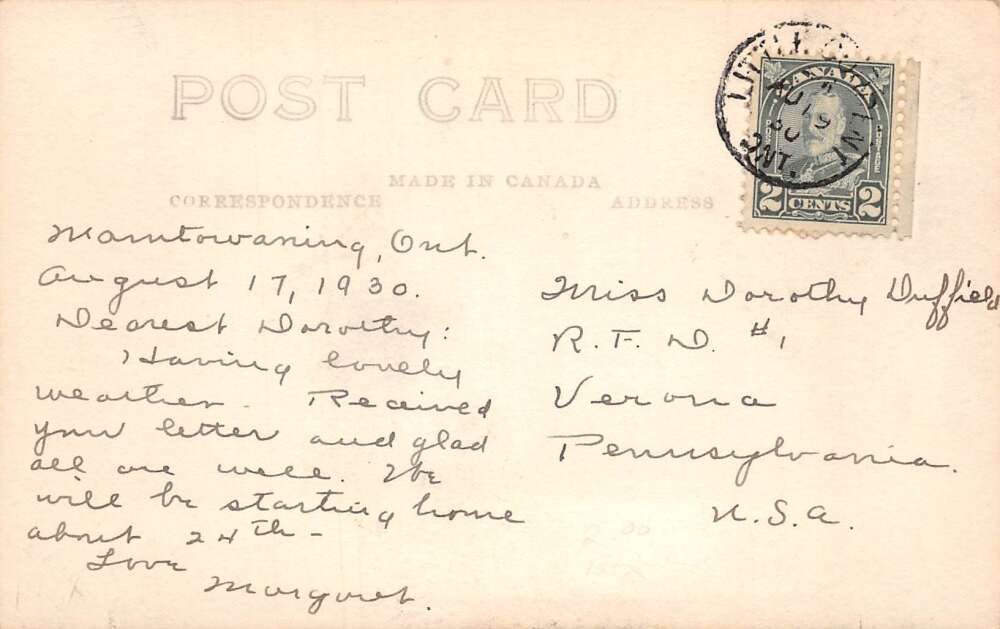 POST CARD
MADE IN CANADA
CORRESPONDENCE
ADDRESS
LITTLE CURRENT
AU 19
30
ONT.
CANADA
POSTES
POSTAGE
2 CENTS 2
Manitowaning, Ont.
August 17, 1930.
Dearest Dorothy:
Having lovely
weather. Received
your letter and glad
all are well. We
will be starting home
about 24th -
Love
Margaret.
Miss Dorothy Duffield
R. F. D. #1
Verona
Pennsylvania.
U. S. A.
2 00